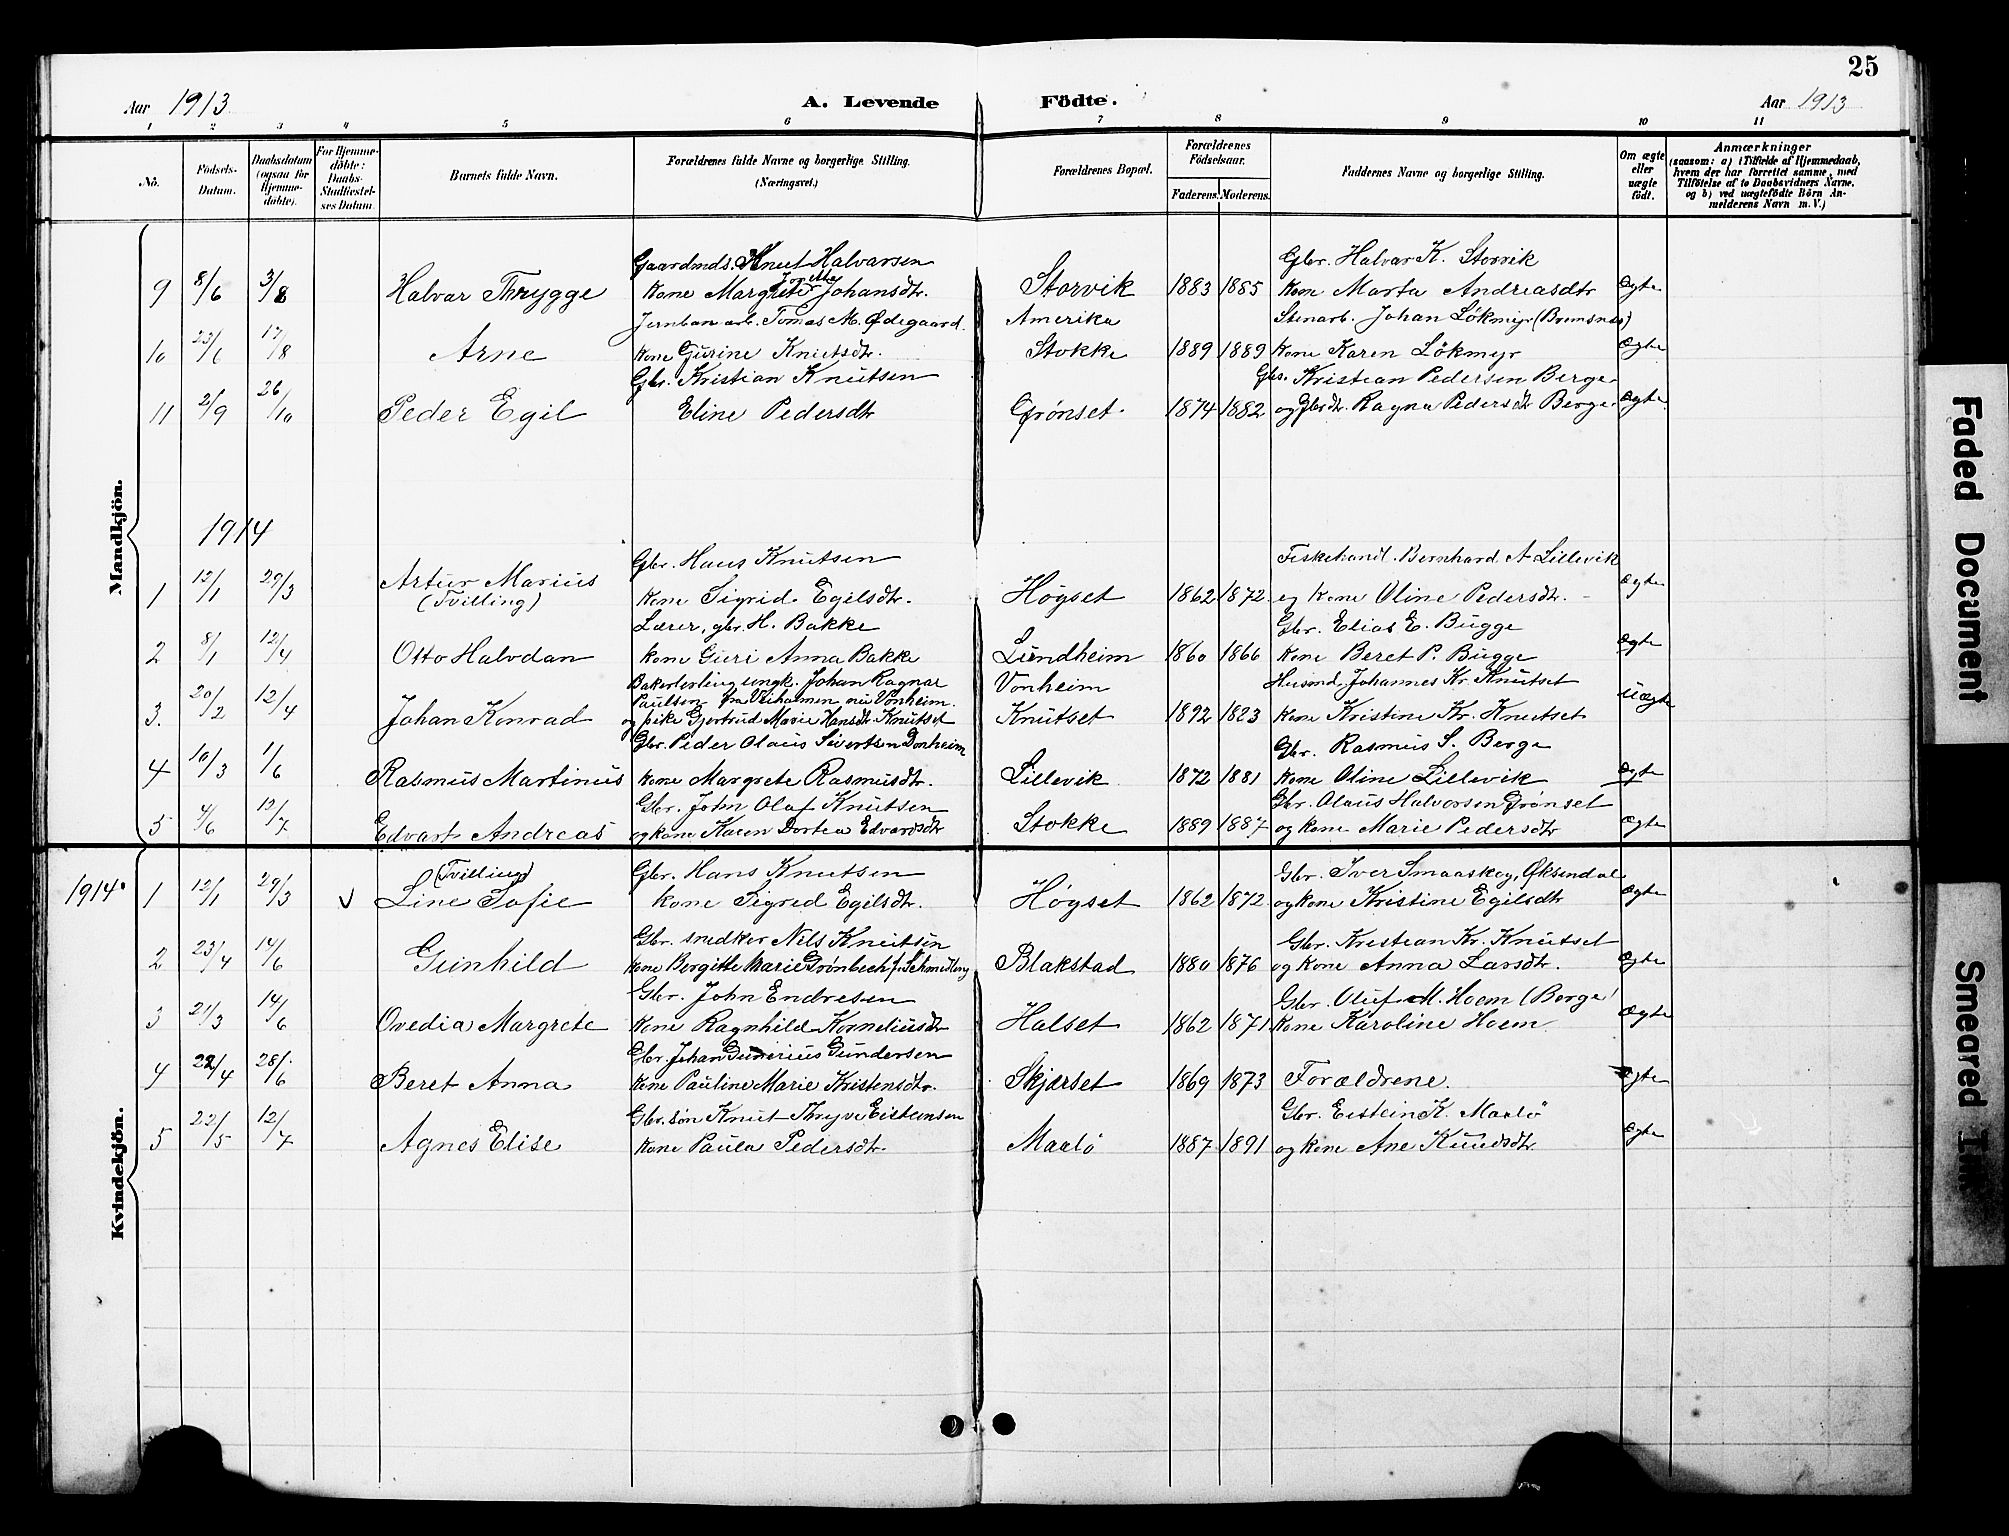 25
Aar 1913 A. Levende Födte. Aar 1913
1 2 3 4 5 6 7 8 9 10 11
No. Födsels-Datum. Daabsdatum (ogsaa for Hjemme-döbte). For Hjemme-döbte: Daabs-Stadfæstel-ses Datum. Barnets fulde Navn. Forældrenes fulde Navne og borgerlige Stilling. (Næringsvei.) Forældrenes Bopæl. Forældrenes Födselsaar. Faderens. Moderens. Faddernes Navne og borgerlige Stilling. Om ægte eller uægte födt. Anmærkninger (saasom: a) i Tilfælde af Hjemmedaab, hvem der har forrettet samme, med Tilföielse af to Daabsvidners Navne, og b) ved uægtefödte Börn An-melderens Navn m. V.)
Mandkjön.
Gaardmds. Knut Halvarsen Gbr. Halvar K. Storvik
9 8/6 3/8 Halvar Thrygge kone Margrete Johansdtr. Storvik 1883 1885 kone Marta Andreasdtr Ægte
Jernban arb. Tomas M. Ødegaard. Amerika Stenarb. Johan Lökmyr (Bremsnes)
10 23/6 17/8 Arne kone Gurine Knutsdtr. Stokke 1889 1889 kone Karen Lökmyr Ægte
Gbr. Kristian Knutsen Gbs. Kristian Pedersen Berge
11 2/9 26/10 Peder Egil Eline Pedersdtr Grönset. 1874 1882 og Gbrdtr. Ragna Pedersdtr Berge. Ægte.
1914
Gbr. Hans Knutsen Fiskehandl. Bernhard A Lillevik
1 12/1 29/3 Artur Marius (Tvilling) kone Sigrid Egilsdtr. Høgset 1862 1872 og kone Oline Pedersdtr. Ægte
Lærer, gbr. H. Bakke Gbr. Elias E. Bugge
2 8/1 12/4 Otto Halvdan kone Guri Anna Bakke Lundheim 1860 1866 kone Beret P. Bugge Ægte
Bakerlerling ungk. Johan Ragnar Vonheim Husmd. Johannes Kr. Knutset
Paulsen fra Veiholmen nu Vonheim.
3. 20/2 12/4 Johan Konrad og pike Gjertrud Marie Hansdtr. Knutset Knutset 1892 1823 kone Kristine Kr. Knutset Uægte
Gbr. Peder Olaus Sivertsen Donheim Gbr. Rasmus S. Berge
4 10/3 1/6 Rasmus Martinus kone Margrete Rasmusdtr. Lillevik 1872 1881 kone Oline Lillevik Ægte
Gbr. John Olaf Knutsen Gbr. Olaus Halvorsen Grönset
5 4/6 12/7 Edvart Andreas og kone Karen Dortea Edvardsdtr Stokke 1889 1887 og kone Marie Pedersdtr Ægte
Kvindekjön.
(Tvilling) Gbr. Hans Knutsen Gbr. Iver Smaaskog, Øksendal
1914. 1 12/1 29/3 v Line Sofie kone Sigred Egilsdtr. Høgset 1862 1872 og kone Kristine Egilsdtr Ægte
Gbr. snedker Nils Knutsen Gbr. Kristian Kr. Knutset
2 23/4 14/6 Gunhild kone Bergitte Marie Grönbech f. Schmidling Blakstad 1880 1876 og kone Anna Larsdtr. Ægte
Gbr. John Endresen Gbr. Oluf M. Hoem (Berge)
3 21/3 14/6 Ovedia Margrete kone Ragnhild Korneliusdtr Halset 1862 1871 kone Karoline Hoem. Ægte
Gbr. Johan Gunerius Gundersen
4 22/4 28/6 Beret Anna kone Pauline Marie Kristensdtr. Skjærset 1869 1873 Forældrene. Ægte
Gbr. søn Knut Thryve Eisteinsen Gbr. Eistein K. Maalö
5 22/5 12/7 Agnes Elise kone Paula Pedersdtr. Maalö 1887 1891 og kone Ane Knudsdtr. Ægte
Faded Document
Smeared Ink